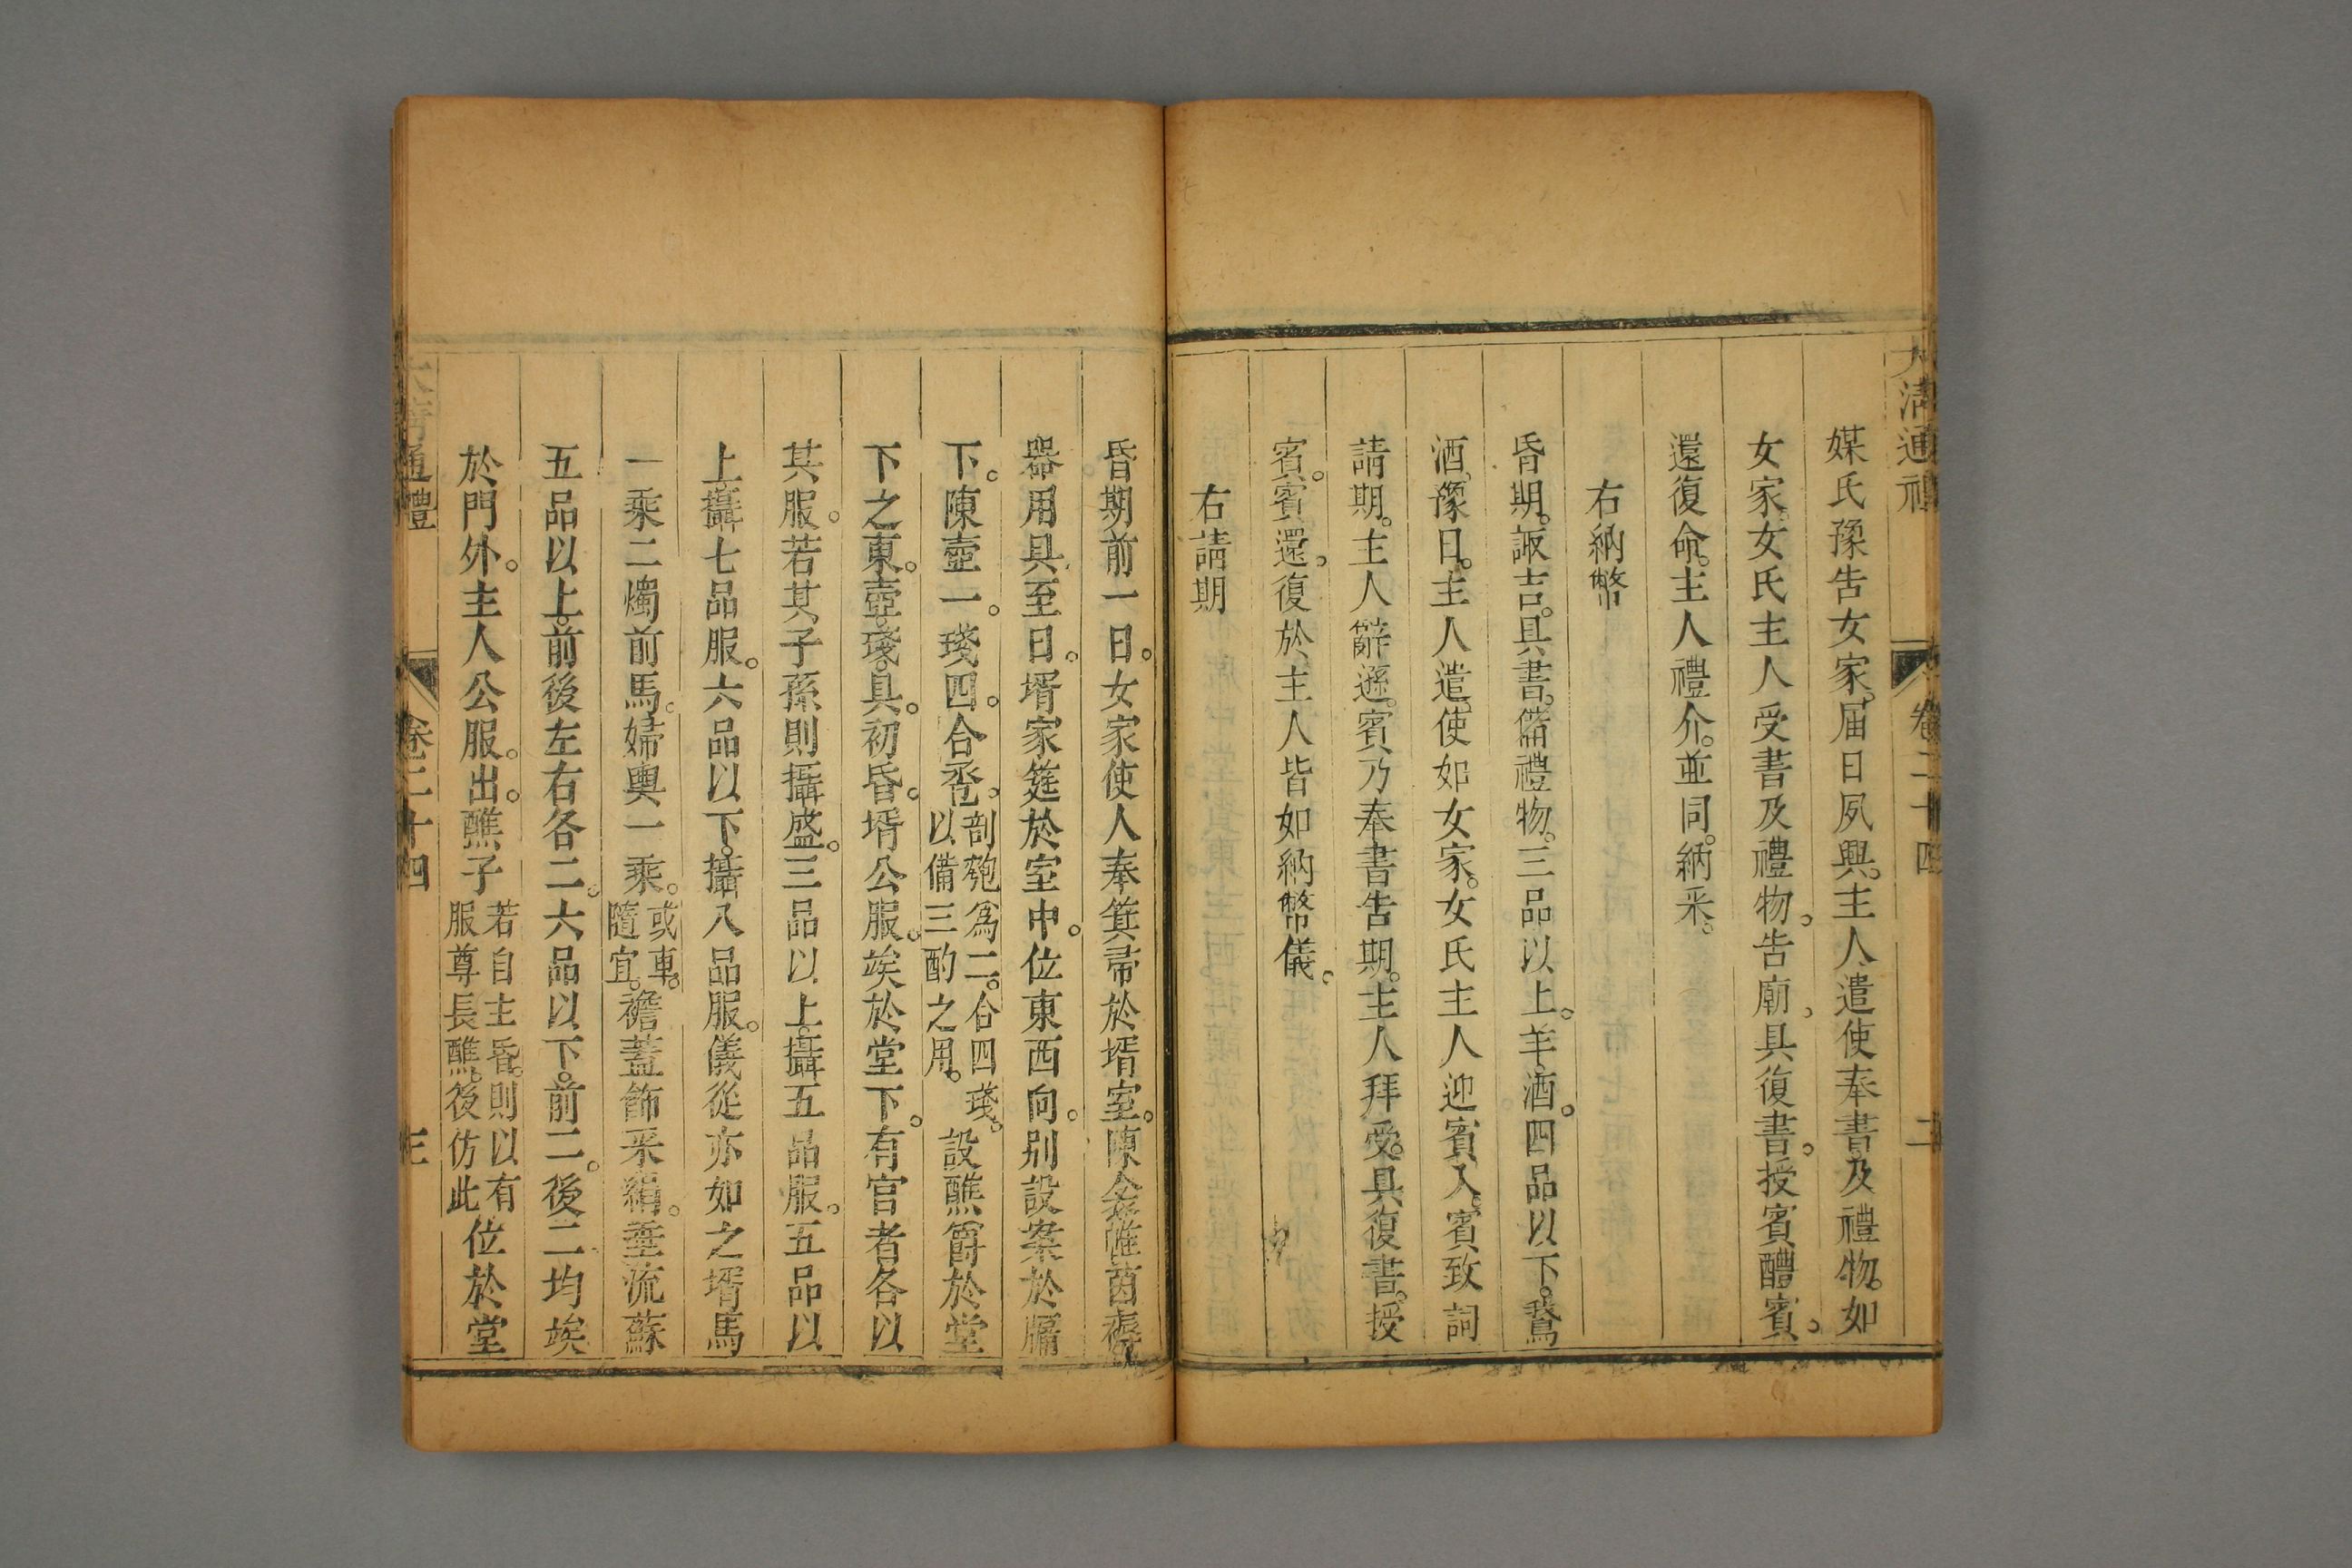 大清通禮 卷二十四 二
媒氏豫告女家。届日夙興。主人遣使奉書及禮物。如
女家。女氏主人受書及禮物。告廟。具復書。授賓。醴賓。
還復命。主人禮介。並同。納采。
右納幣
昏期。諏吉。具書。備禮物。三品以上。羊。酒。四品以下。鵞
酒。豫日。主人遣使如女家。女氏主人迎賓入。賓致詞
請期。主人辭遜。賓乃奉書告期。主人拜受。具復書。授
賓。賓還。復於主人皆如納幣儀。
右請期
昏期前一日。女家使人奉箕帚於壻室。陳衾帷茵褥。
器用具。至日。壻家筵於室中。位東西向。别設案於牖
下。陳壺一。琖四。合巹。剖匏爲二。合四琖。以備三酌之用。設醮爵於堂
下之東。壺。琖。具。初昏。壻公服。竢於堂下。有官者各以
其服。若其子孫則攝盛。三品以上。攝五品服。五品以
上。攝七品服。六品以下。攝八品服。儀從亦如之壻馬
一乘二燭前馬。婦輿一乘。或車。隨宜。襜蓋飾采絹。垂流蘇
五品以上。前後左右各二。六品以下。前二。後二均竢
於門外。主人公服。出。醮子若自主昏。則以有服尊長醮。後仿此位於堂
大清通禮 卷二十四 三